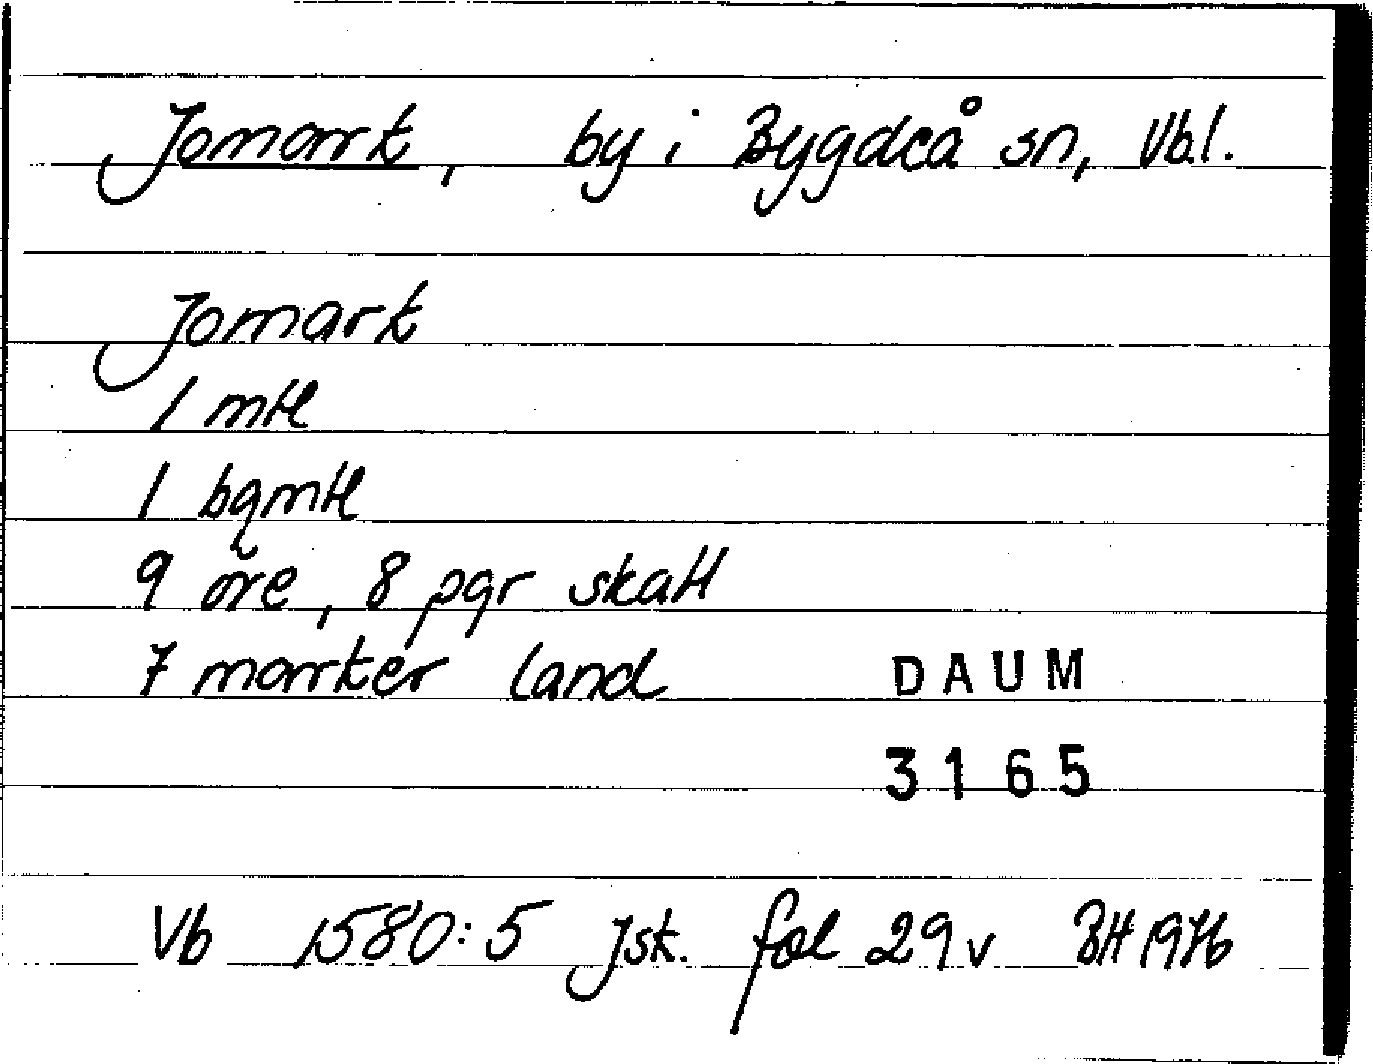 Jomark, by i Bygdeå sn, Vbl.
Jomark
1 mtl
1 bqmtl
9 öre, 8 pgr skatt
7 marker land
DAUM
3165
Vb 1580:5 Jsk. fol 29v BH 1976